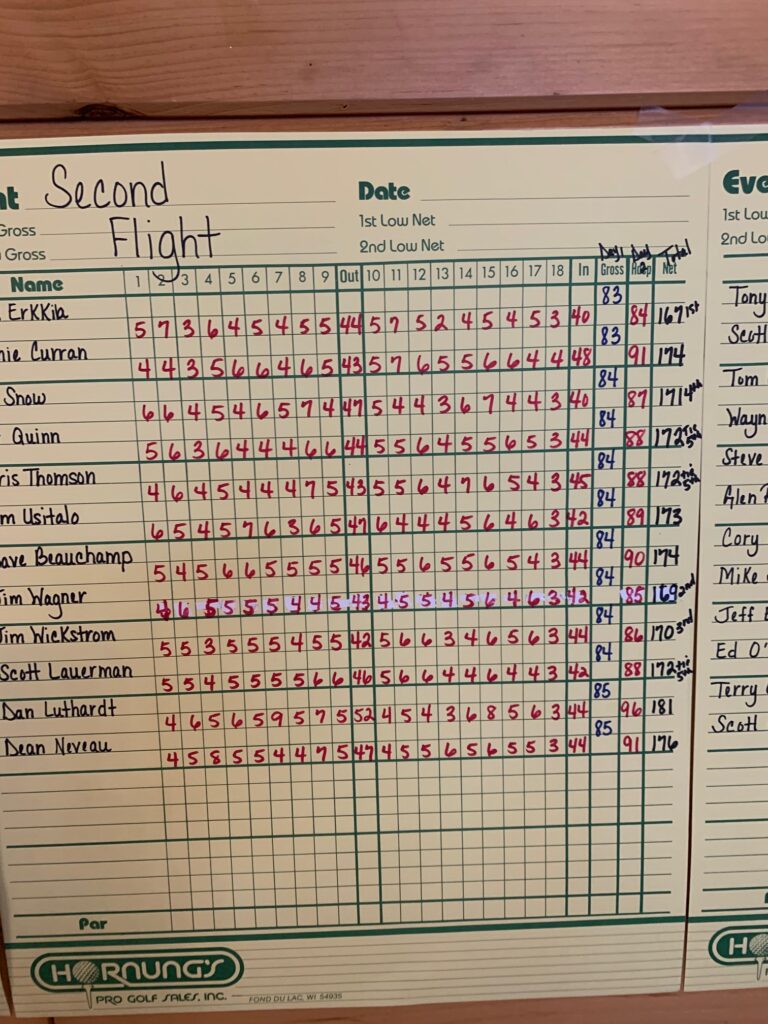 Second
Date
Gross
Flight
1st Low Net
Gross
2nd Low Net
Day 1 Day 2 Total
Name 1 2 3 4 5 6 7 8 9 Out 10 11 12 13 14 15 16 17 18 In Gross Net
83
Erkkila 5 7 3 6 4 5 4 5 5 44 5 7 5 2 4 5 4 5 3 40 84 167 1st
83
nie Curran 4 4 3 5 6 6 4 6 5 43 5 7 6 5 5 6 6 4 4 48 91 174
84
Snow 6 6 4 5 4 6 5 7 4 47 5 4 4 3 6 7 4 4 3 40 87 171 4th
84
Quinn 5 6 3 6 4 4 4 6 6 44 5 5 6 4 5 5 6 5 3 44 88 172 Tie 5th
84
ris Thomson 4 6 4 5 4 4 4 7 5 43 5 5 6 4 7 6 5 4 3 45 88 172 tie 5th
84
m Usitalo 6 5 4 5 7 6 3 6 5 47 6 4 4 4 5 6 4 6 3 42 89 173
84
ave Beauchamp 5 4 5 6 6 5 5 5 5 46 5 5 6 5 5 6 5 4 3 44 90 174
84
Jim Wagner 4 6 5 5 5 5 4 4 5 43 4 5 5 4 5 6 4 6 3 42 85 169 2nd
84
Jim Wickstrom 5 5 3 5 5 5 4 5 5 42 5 6 6 3 4 6 5 6 3 44 86 170 3rd
84
Scott Lauerman 5 5 4 5 5 5 5 6 6 46 5 6 6 4 4 6 4 4 3 42 88 172 tie 5th
85
Dan Luthardt 4 6 5 6 5 9 5 7 5 52 4 5 4 3 6 8 5 6 3 44 96 181
85
Dean Neveau 4 5 8 5 5 4 4 7 5 47 4 5 5 6 5 6 5 5 3 44 91 176
Par
HORNUNG'S
PRO GOLF SALES, INC. FOND DU LAC, WI 54935
Eve
1st Low
2nd Lo
Tony
Scott
Tom
Wayn
Steve
Allen
Cory
Mike
Jeff
Ed O'
Terry
Scott
HO